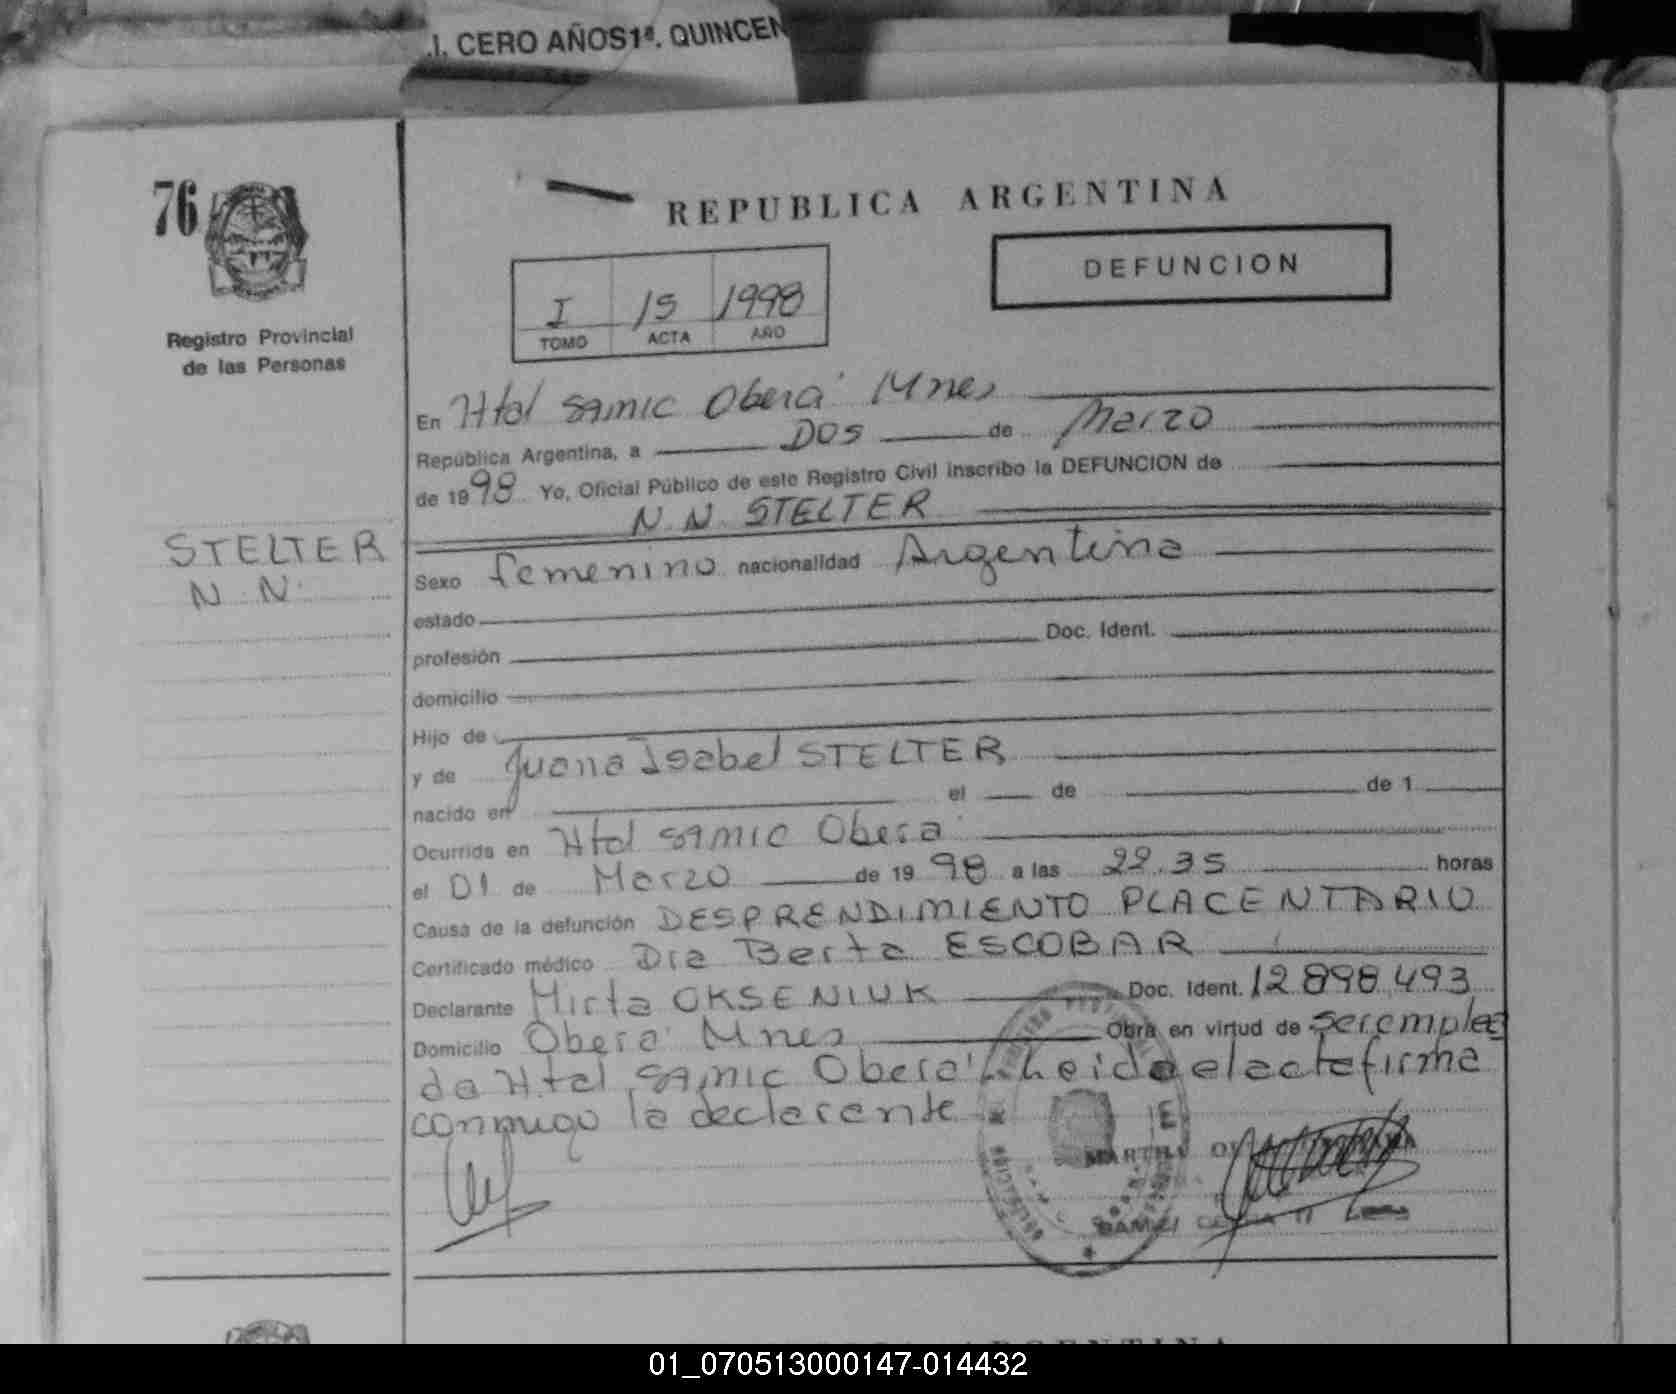 .I. CERO AÑOS 1ª. QUINCEN
76
Registro Provincial
de las Personas
REPUBLICA ARGENTINA
DEFUNCION
I 15 1998
TOMO ACTA AÑO
En Htal samic Oberá Mnes
República Argentina, a DOS de Marzo
de 1998 Yo, Oficial Público de este Registro Civil inscribo la DEFUNCION de
N.N. STELTER
STELTER
N.N.
Sexo femenino nacionalidad Argentina
estado
profesión Doc. Ident.
domicilio
Hijo de
y de Juana Isabel STELTER
nacido en el de de 1
Ocurrida en Htal samic Oberá
el 01 de Marzo de 1998 a las 22.35 horas
Causa de la defunción DESPRENDIMIENTO PLACENTARIO
Certificado médico Dra Berta ESCOBAR
Declarante Mirta OKSENIUK Doc. Ident. 12.898.493
Domicilio Oberá Mnes Obra en virtud de ser emplea
da Htal samic Oberá. Leida el acta firma
conmigo la declarante
MARTHA
ARGENTINA
01_070513000147-014432